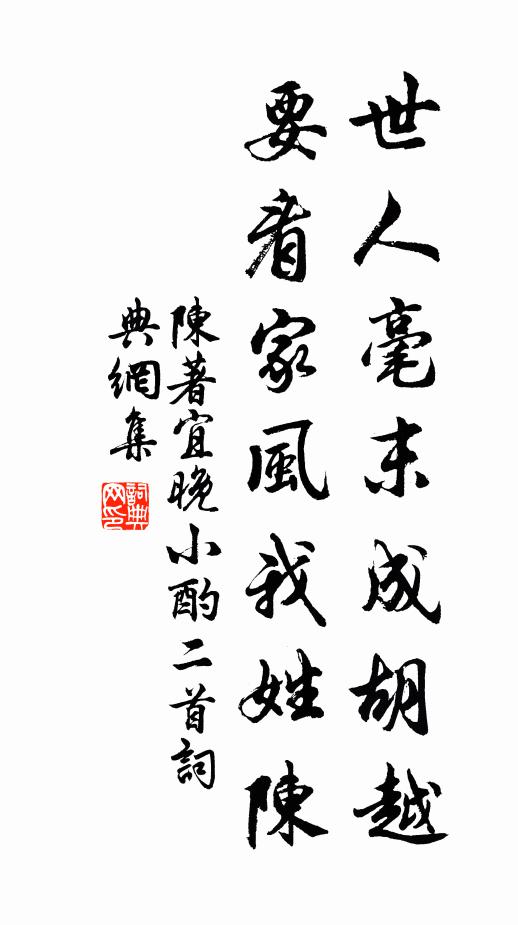 世人毫末成胡越
要看家風我姓陳
陳著宜晚小酌二首詞
典網集
詞典
网印